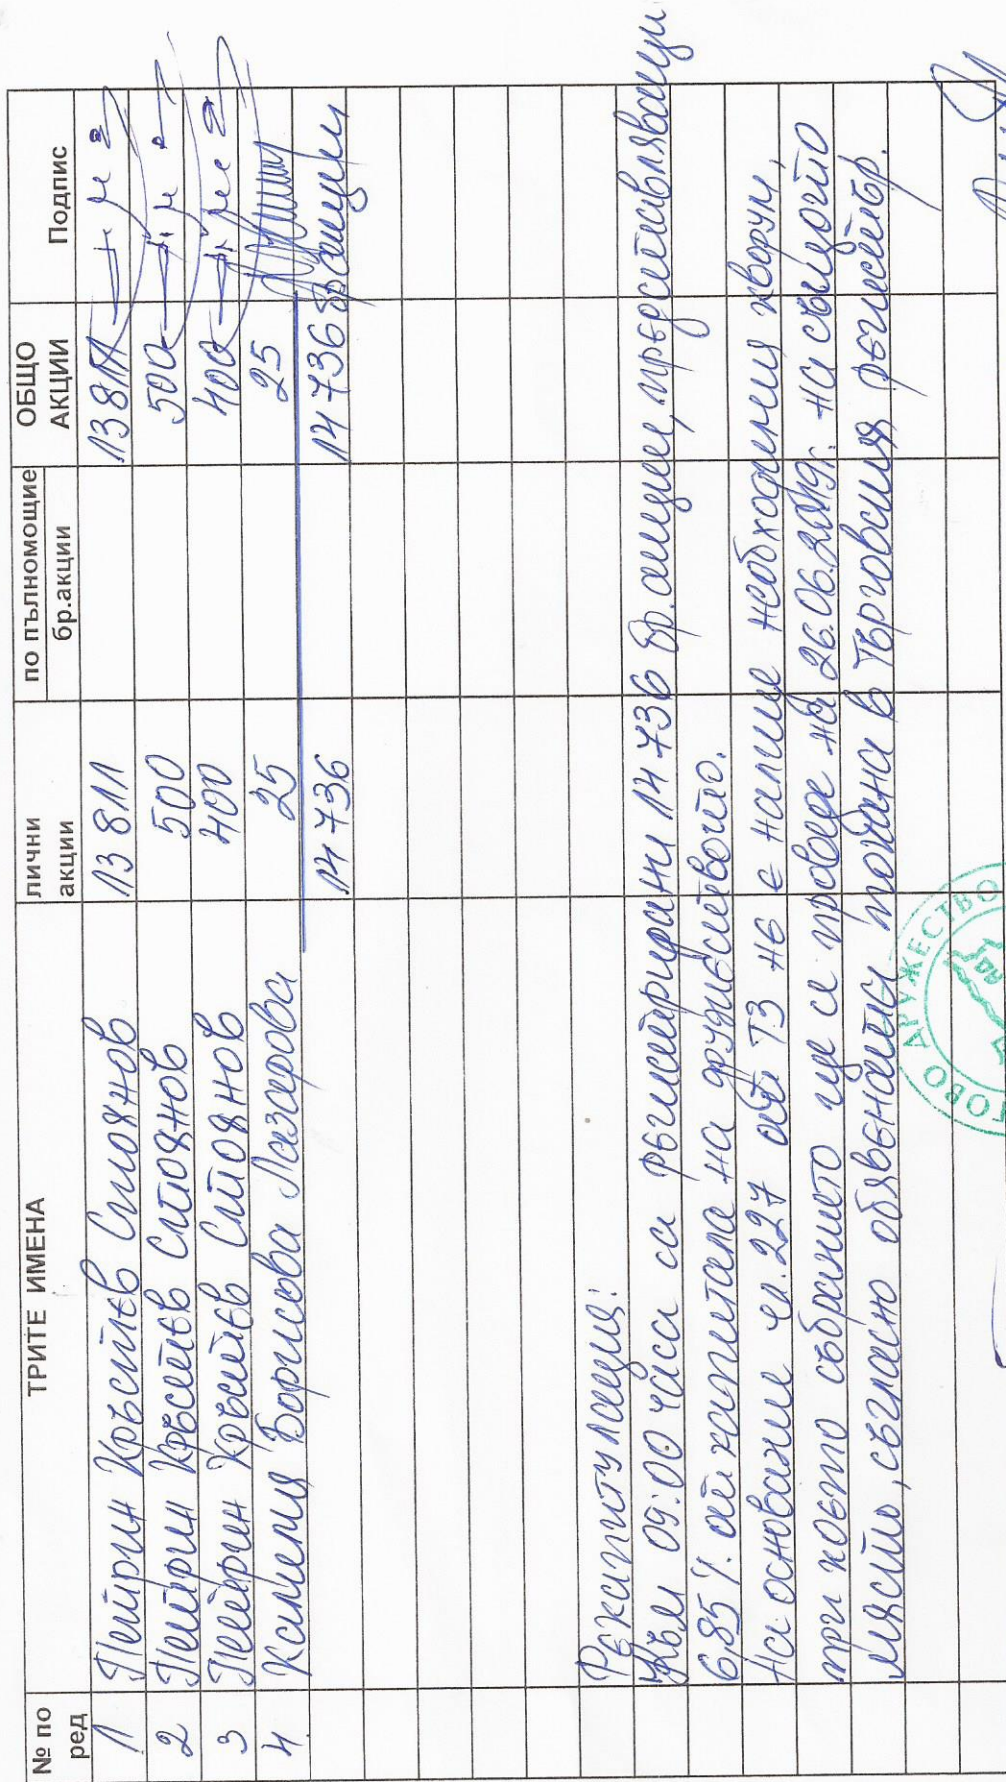 № по ред ТРИТЕ ИМЕНА лични акции по пълномощие бр.акции ОБЩО АКЦИИ Подпис
1 Петрин Кръстев Стоянов 13 811 13811
2 Петрин Кръстев Стоянов 500 500
3 Петрин Кръстев Стоянов 400 400
4 Камелия Борисова Лазарова 25 25
14 736 14 736 бр акции
Рекапитулация:
Към 09:00 часа са регистрирани 14 736 бр. акции, представляващи
6,85 % от капитала на дружеството.
На основание чл. 227 от ТЗ не е налице необходимия кворум,
при което събранието ще се проведе на 26.06.2019г. на същото
място, съгласно обявената покана в Търговския регистър.
ДРУЖЕСТВО